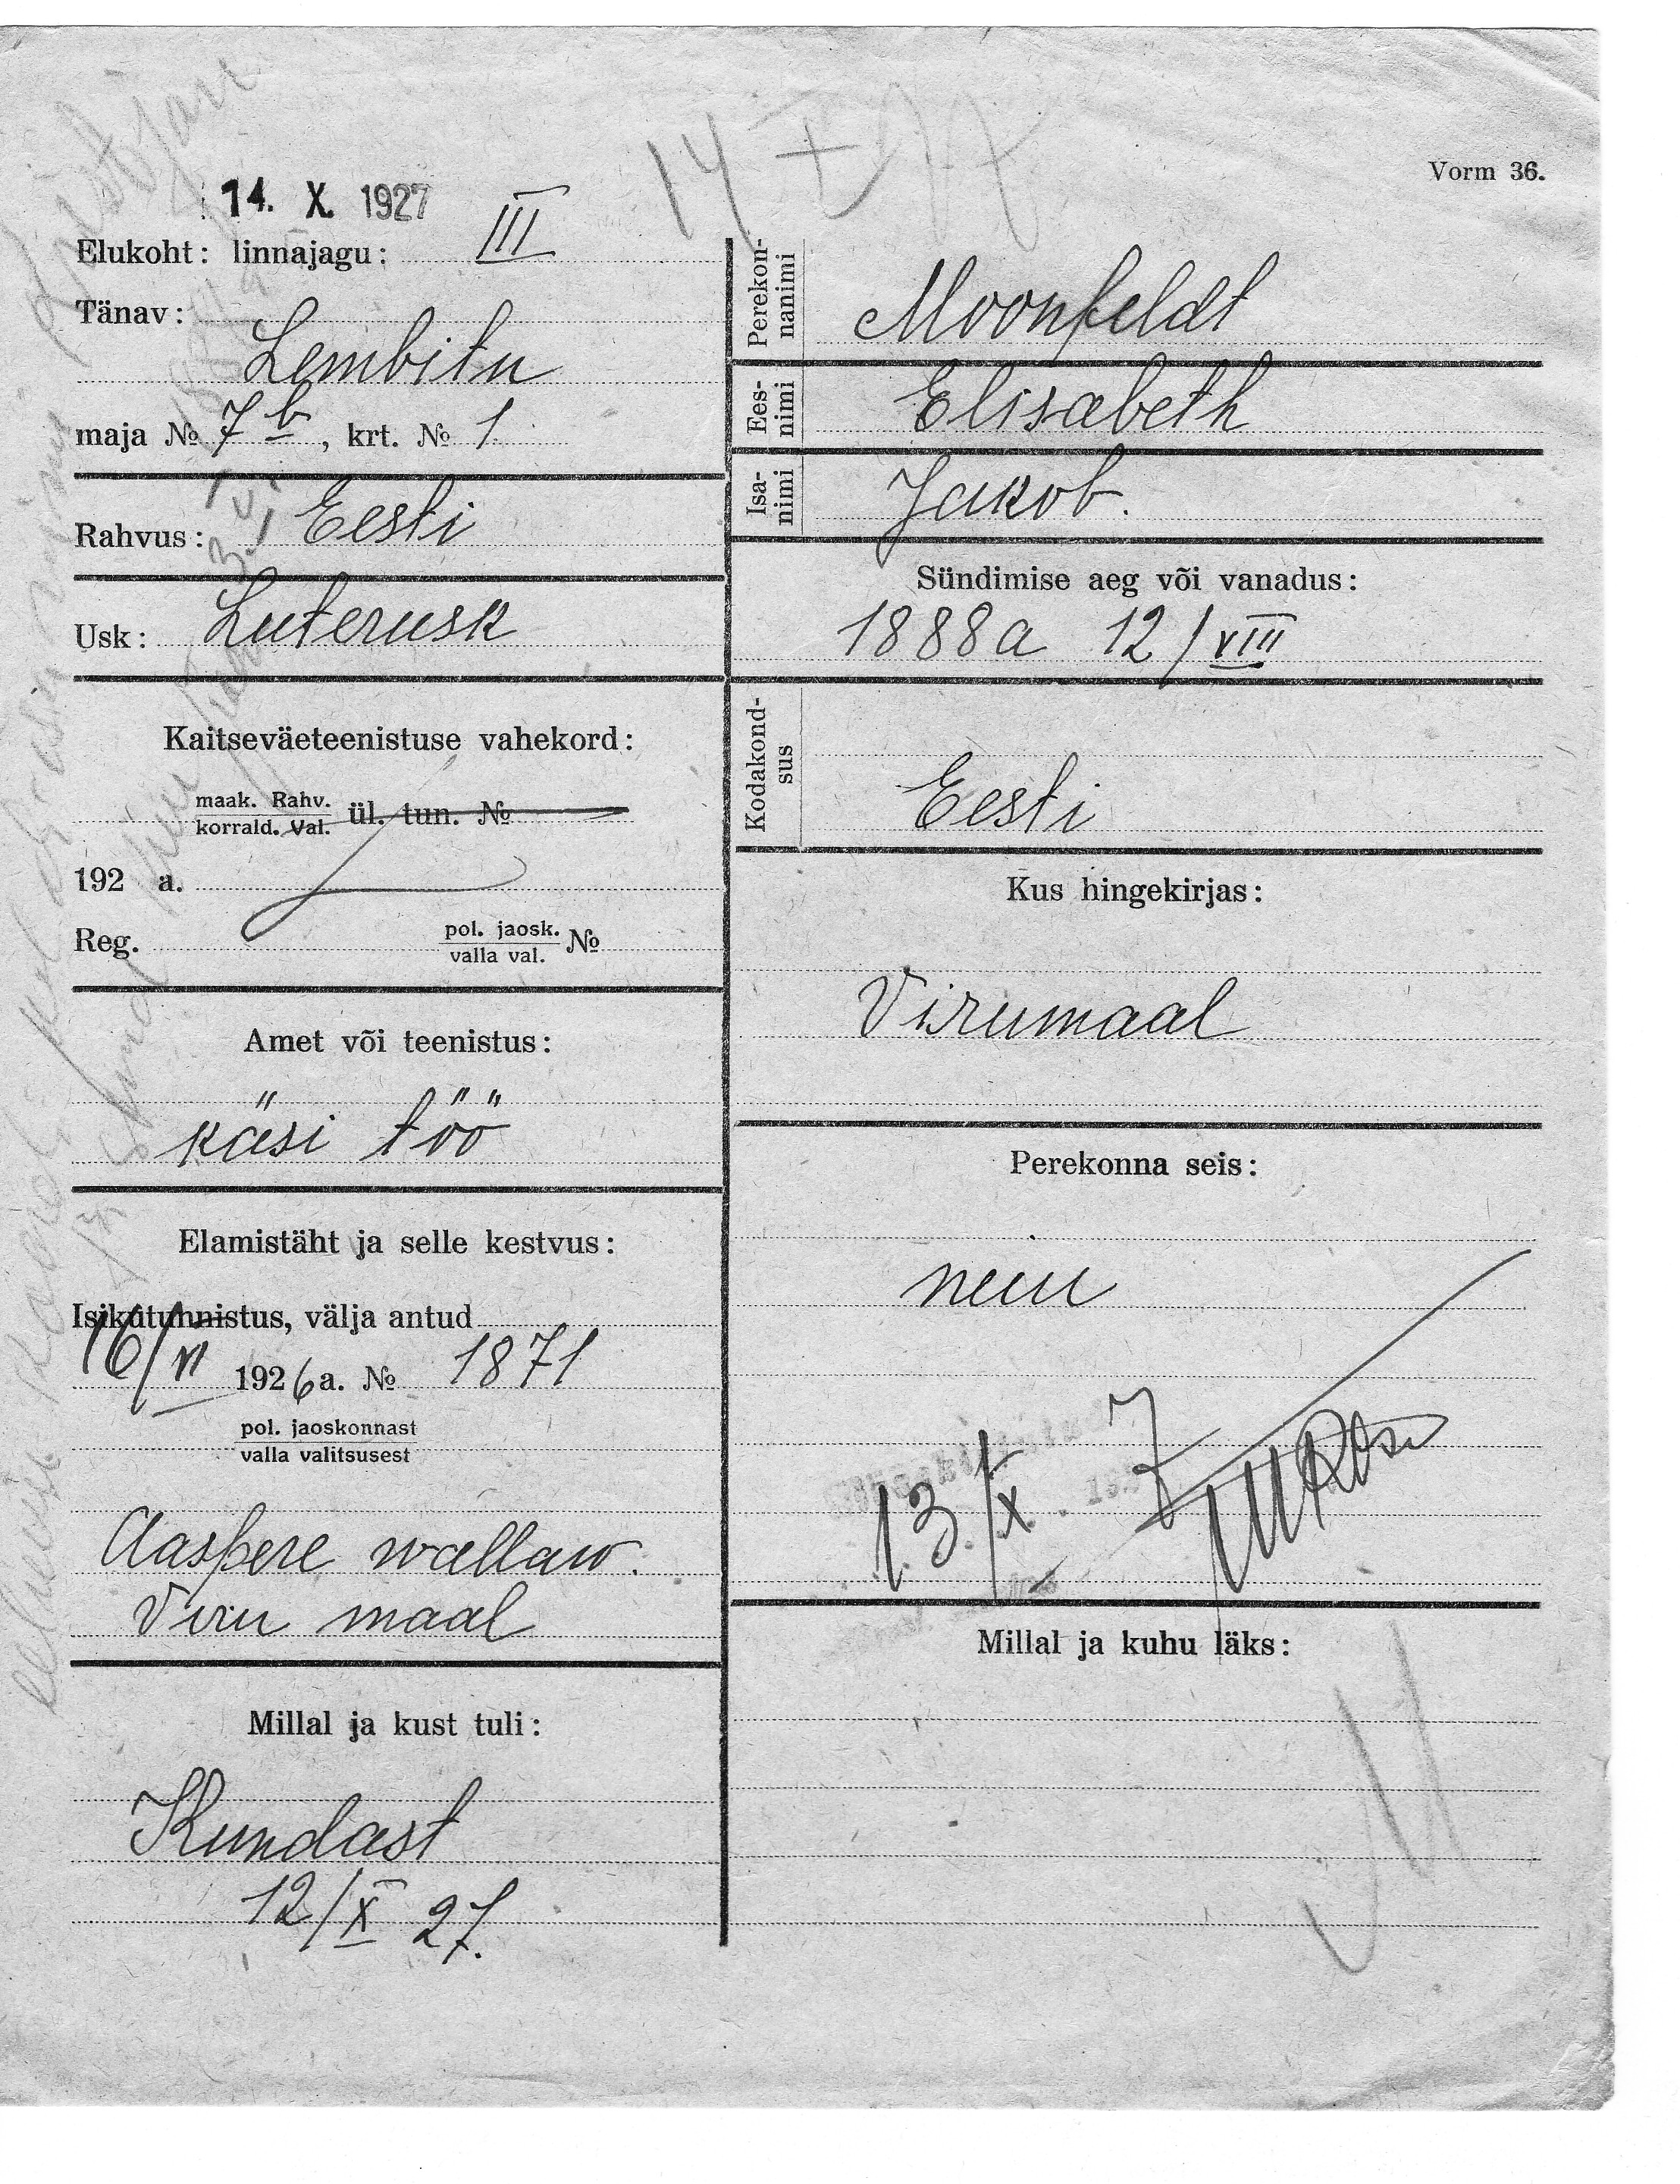 Vorm 36.
14. X. 1927
Elukoht: linnajagu: III
Tänav:
Lembitu
maja № 7 b, krt. № 1.
Rahvus: Eesti
Usk: Luterusk
Kaitseväeteenistuse vahekord:
maak. Rahv.
korrald. Val. ül. tun. №
192 a.
Reg. pol. jaosk. №
valla val.
Amet või teenistus:
käsi töö
Elamistäht ja selle kestvus:
Isikutunnistus, välja antud
16/VI 1926 a. № 1871
pol. jaoskonnast
valla valitsusest
Aaspere wallaw.
Viru maal
Millal ja kust tuli:
Kundast
12/X 27.
Perekon-
nanimi
Moonfeldt
Ees-
nimi
Elisabeth
Isa-
nimi
Jakob.
Sündimise aeg või vanadus:
1888a 12/VIII
Kodakond-
sus
Eesti
Kus hingekirjas:
Virumaal
Perekonna seis:
neiu
13/X 7
Millal ja kuhu läks: